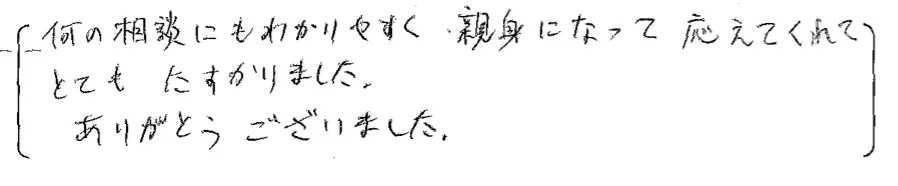 何の相談にもわかりやすく、親身になって応えてくれて
とてもたすかりました。
ありがとうございました。